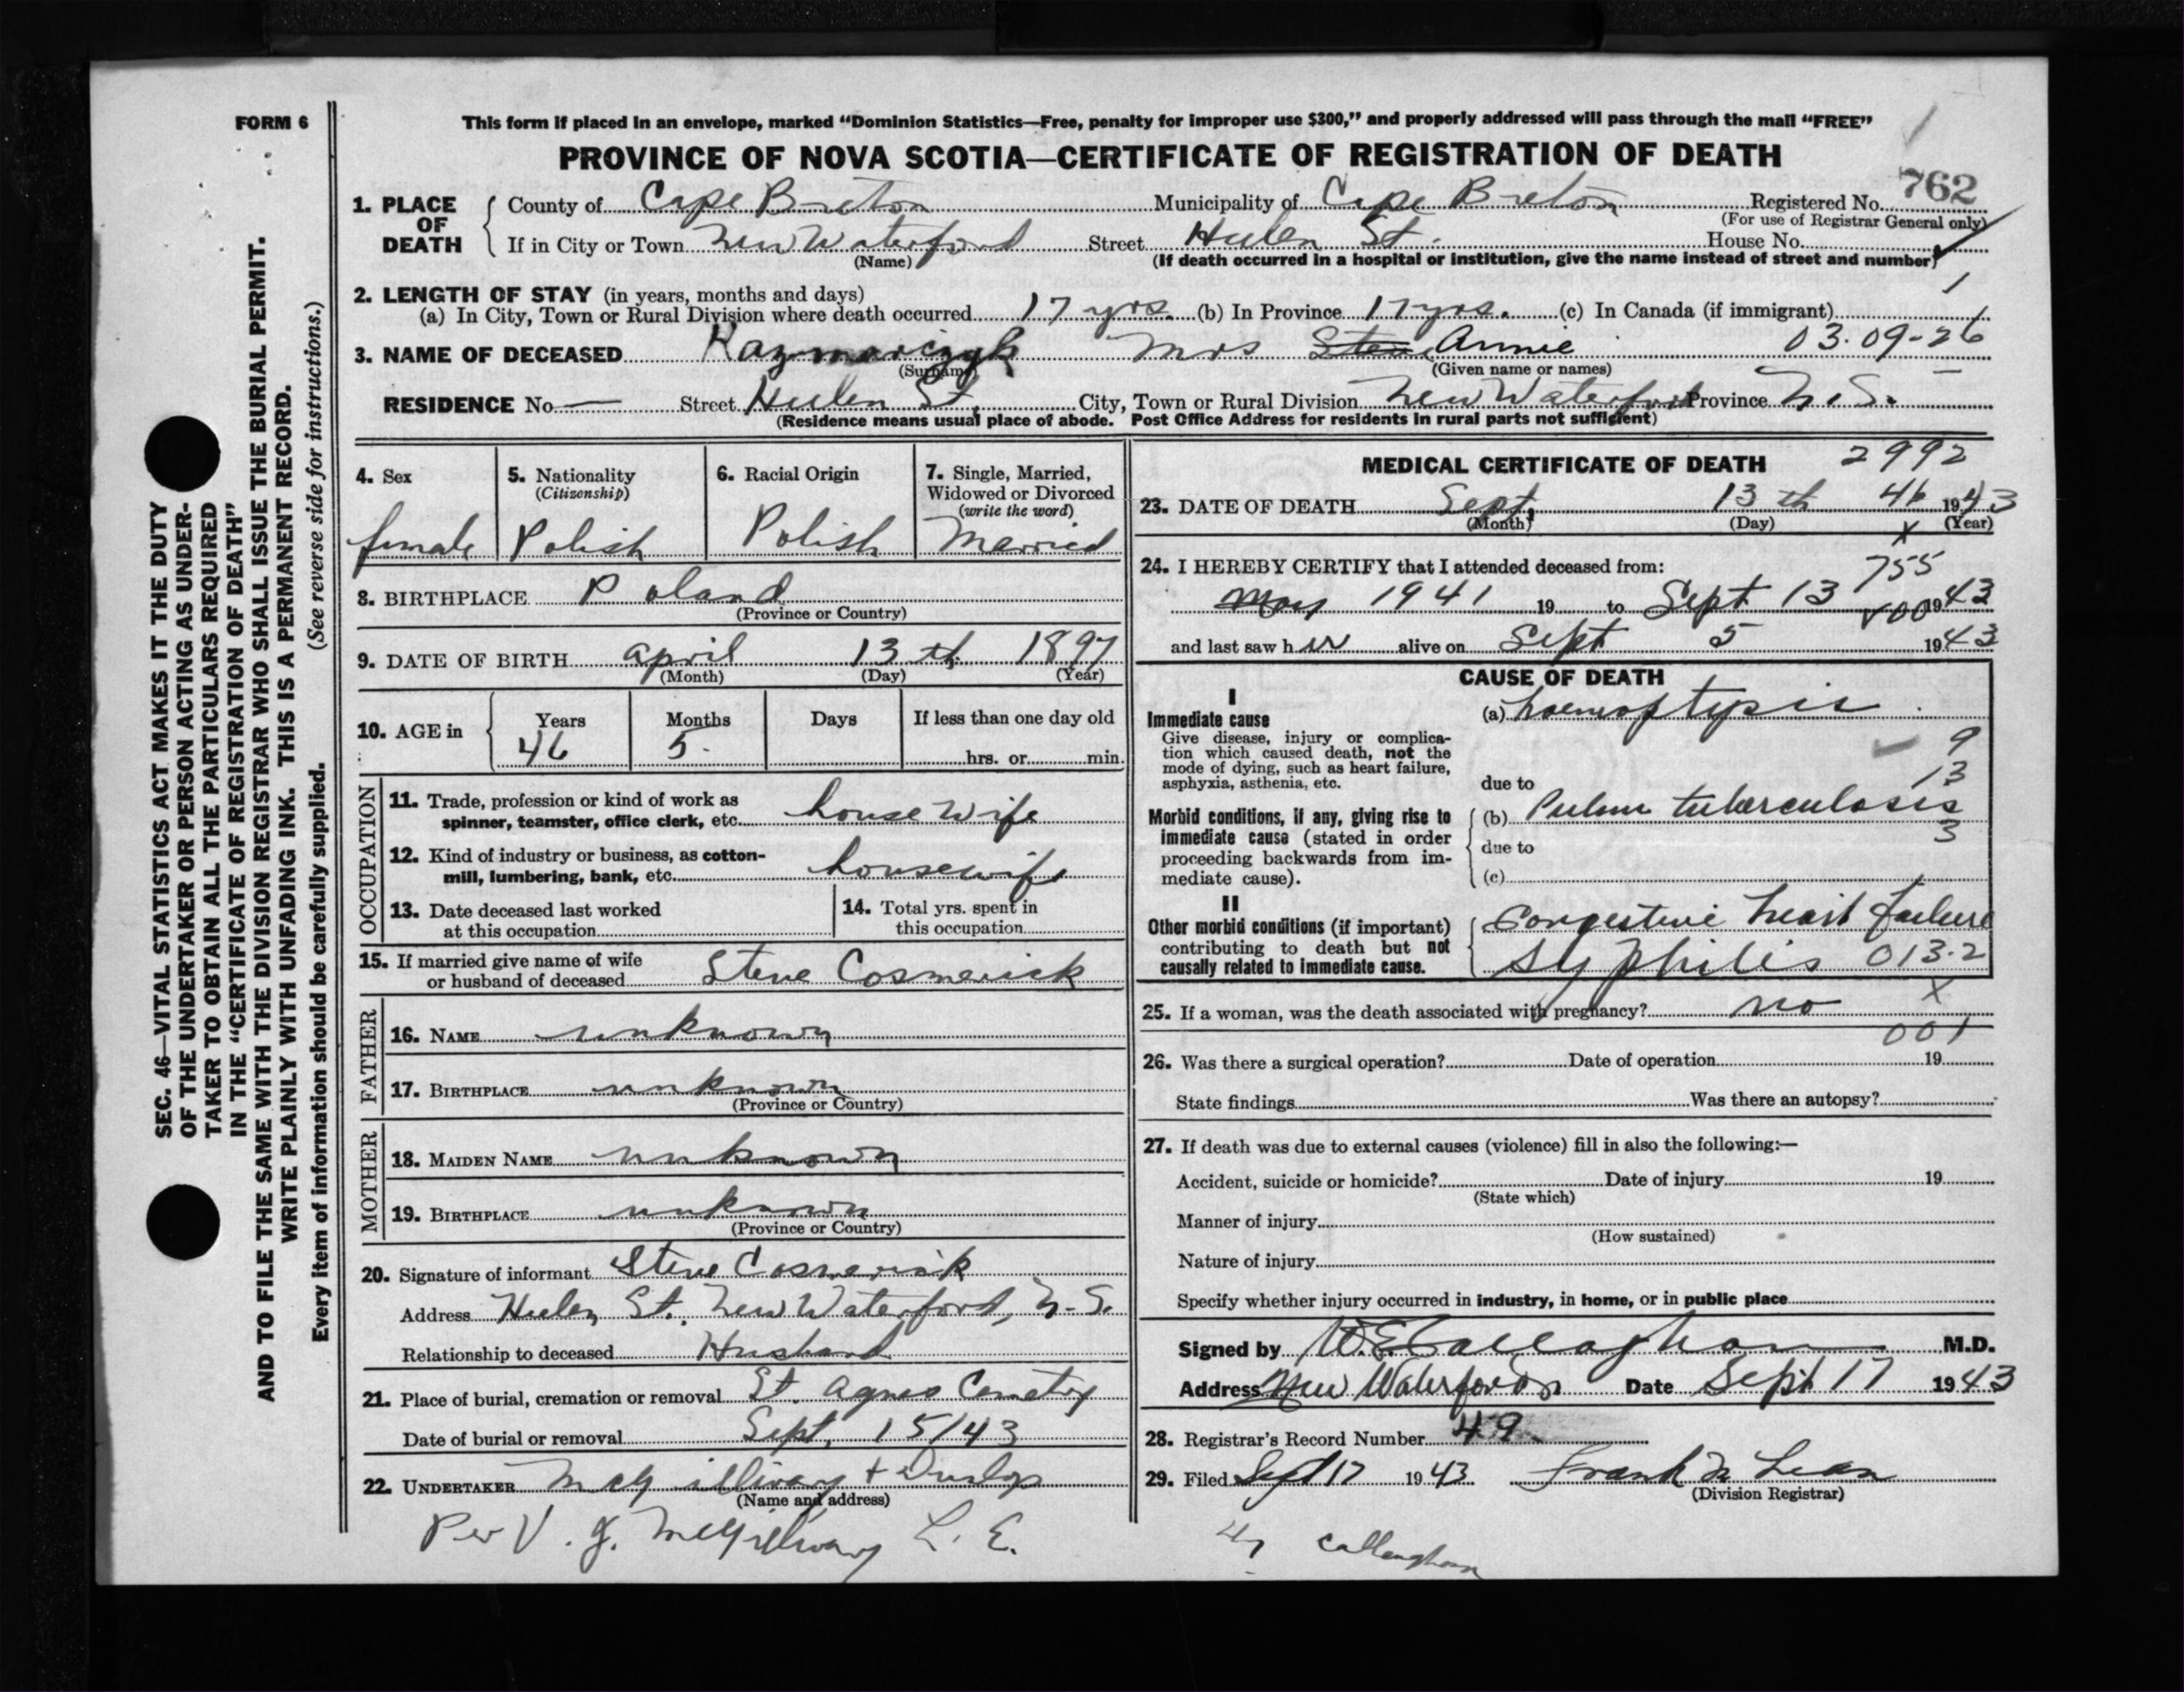 FORM 6
This form if placed in an envelope, marked “Dominion Statistics—Free, penalty for improper use $300,” and properly addressed will pass through the mail “FREE”
PROVINCE OF NOVA SCOTIA—CERTIFICATE OF REGISTRATION OF DEATH
762
1. PLACE OF DEATH County of Cape Breton Municipality of Cape Breton Registered No.
(For use of Registrar General only)
If in City or Town New Waterford Street Street Helen St. House No.
(Name) (If death occurred in a hospital or institution, give the name instead of street and number)
2. LENGTH OF STAY (in years, months and days)
(a) In City, Town or Rural Division where death occurred 17 yrs. (b) In Province 17 yrs. (c) In Canada (if immigrant)
3. NAME OF DECEASED Kazmarczyk Mrs Steve Annie 03.09-26
(Surname) (Given name or names)
RESIDENCE No — Street Helen St. City, Town or Rural Division New Waterford Province N.S.
(Residence means usual place of abode. Post Office Address for residents in rural parts not sufficient)
4. Sex 5. Nationality 6. Racial Origin 7. Single, Married,
(Citizenship) Widowed or Divorced
(write the word)
female Polish Polish Married
8. BIRTHPLACE Poland
(Province or Country)
9. DATE OF BIRTH April 13th 1897
(Month) (Day) (Year)
10. AGE in Years Months Days If less than one day old
46 5 hrs. or min.
OCCUPATION
11. Trade, profession or kind of work as
spinner, teamster, office clerk, etc. housewife
12. Kind of industry or business, as cotton-
mill, lumbering, bank, etc. housewife
13. Date deceased last worked 14. Total yrs. spent in
at this occupation this occupation
15. If married give name of wife
or husband of deceased Steve Cosmerick
FATHER
16. NAME unknown
17. BIRTHPLACE unknown
(Province or Country)
MOTHER
18. MAIDEN NAME unknown
19. BIRTHPLACE unknown
(Province or Country)
20. Signature of informant Steve Cosmerick
Address Helen St. New Waterford, N.S.
Relationship to deceased Husband
21. Place of burial, cremation or removal St. Agnes Cemetry
Date of burial or removal Sept. 15/43
22. UNDERTAKER McGillivary + Dunlop
(Name and address)
Per V. J. McGillivary L. E.
MEDICAL CERTIFICATE OF DEATH 2992
23. DATE OF DEATH Sept. 13th 46 1943
(Month) (Day) (Year)
24. I HEREBY CERTIFY that I attended deceased from:
755
May 1941 19 to Sept 13 1943
and last saw her alive on Sept 5 1943
CAUSE OF DEATH
I
Immediate cause (a) haemoptysis
Give disease, injury or complica-
tion which caused death, not the
mode of dying, such as heart failure,
asphyxia, asthenia, etc. due to
9
13
Morbid conditions, if any, giving rise to (b) Pulm tuberculosis
immediate cause (stated in order 3
proceeding backwards from im- due to
mediate cause). (c)
II
Other morbid conditions (if important) Congestive heart failure
contributing to death but not
causally related to immediate cause. Syphilis 013.2
25. If a woman, was the death associated with pregnancy? no
001
26. Was there a surgical operation? Date of operation 19
State findings Was there an autopsy?
27. If death was due to external causes (violence) fill in also the following:—
Accident, suicide or homicide? Date of injury 19
(State which)
Manner of injury
(How sustained)
Nature of injury
Specify whether injury occurred in industry, in home, or in public place
Signed by W.E. Callaghan M.D.
Address New Waterford Date Sept 17 1943
28. Registrar's Record Number 49
29. Filed Sept 17 1943 Frank
(Division Registrar)
Callaghan
SEC. 46—VITAL STATISTICS ACT MAKES IT THE DUTY
OF THE UNDERTAKER OR PERSON ACTING AS UNDER-
TAKER TO OBTAIN ALL THE PARTICULARS REQUIRED
IN THE “CERTIFICATE OF REGISTRATION OF DEATH”
AND TO FILE THE SAME WITH THE DIVISION REGISTRAR WHO SHALL ISSUE THE BURIAL PERMIT.
WRITE PLAINLY WITH UNFADING INK. THIS IS A PERMANENT RECORD.
Every item of information should be carefully supplied. (See reverse side for instructions.)